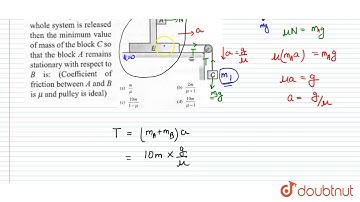 whole system is released
then the minimum value
of mass of the block C so
that the block A remains
stationary with respect to
B is: (Coefficient of
friction between A and B
is μ and pulley is ideal)
(a) m/μ
(b) 2m/μ+1
(c) 10m/1-μ
(d) 10m/μ-1
A
N
→ a
B
μ=0
T
T
↓a = g/μ
C m1
m1g
mg
μN = mAg
μ(mAa) = mAg
μa = g
a = g/μ
T = (mA+mB)a
= 10m × g/μ
doubtnut